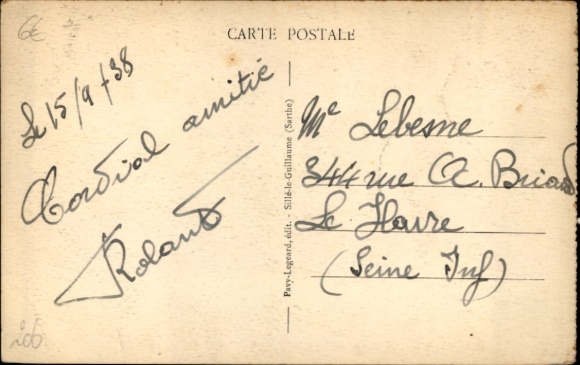 6€
CARTE POSTALE
Le 15/9/38
Cordial amitié
Roland
Pavy-Legeard, édit. - Sillé-le-Guillaume (Sarthe)
Me Lebesne
344 rue A. Briand
Le Havre
(Seine Inf)